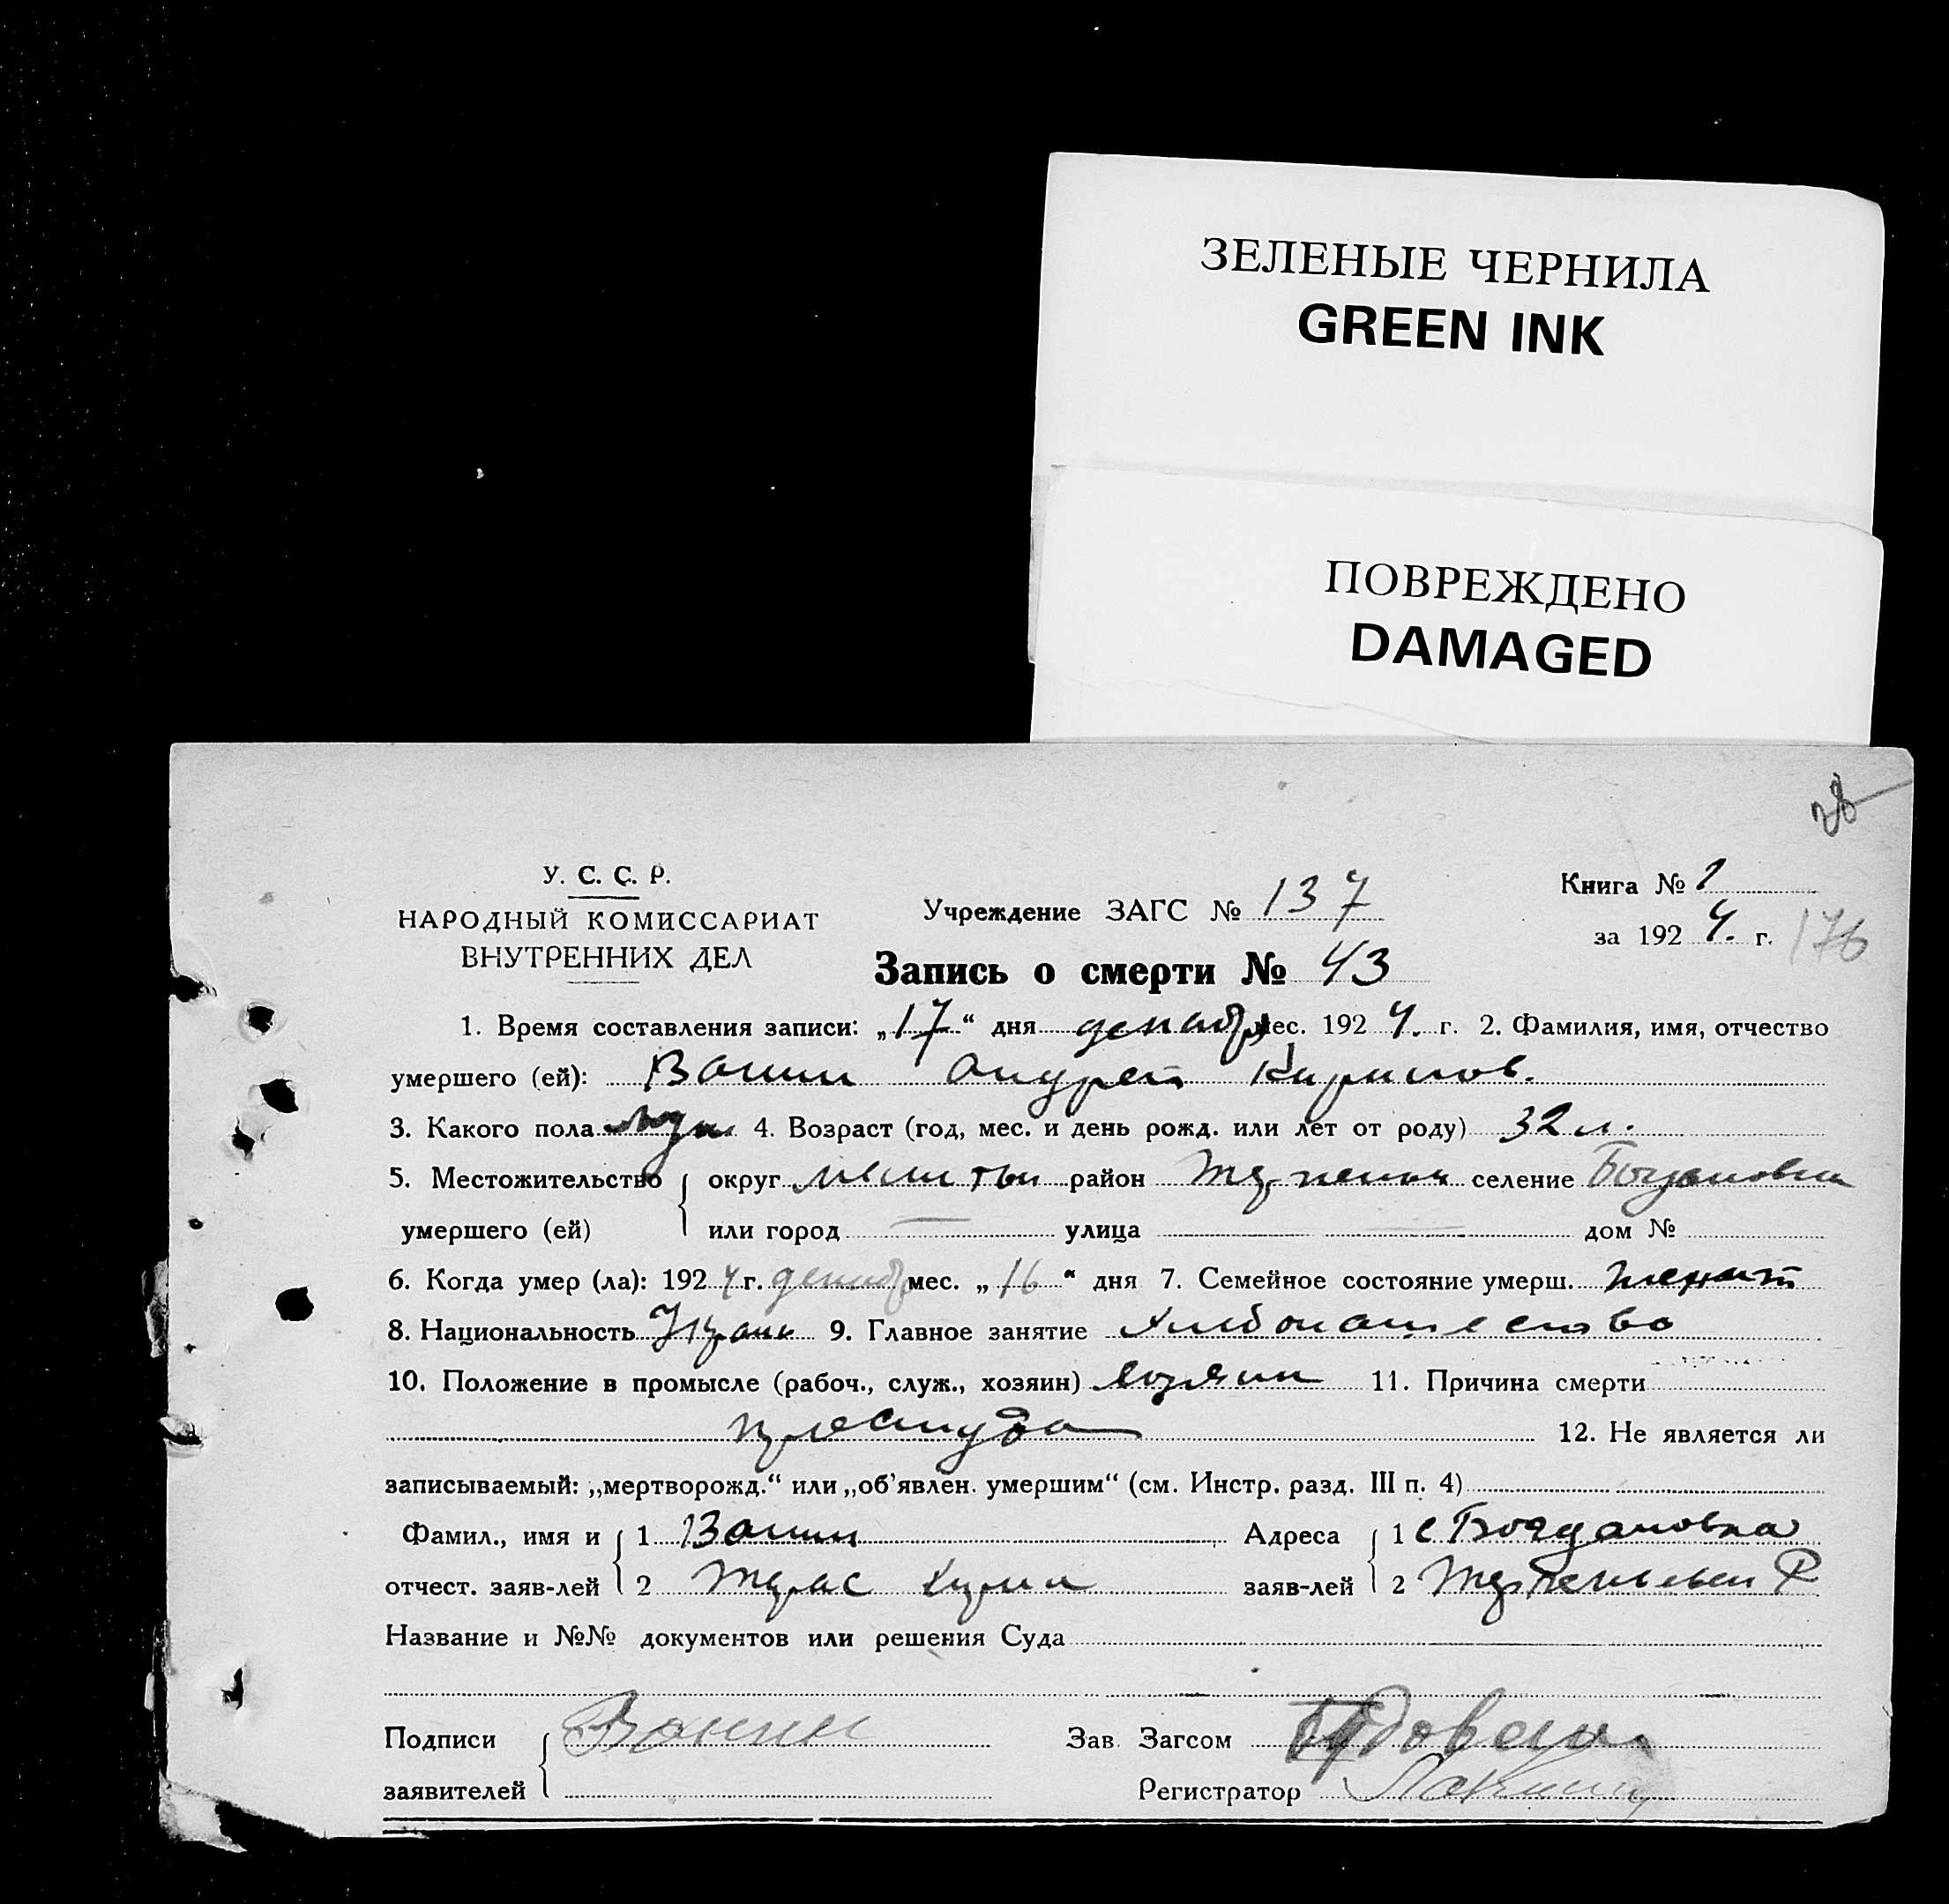 ЗЕЛЕНЫЕ ЧЕРНИЛА
GREEN INK
ПОВРЕЖДЕНО
DAMAGED
У. С. С. Р.
НАРОДНЫЙ КОМИССАРИАТ
ВНУТРЕННИХ ДЕЛ
Учреждение ЗАГС № 137
Книга № 1
за 1924. г. 176
Запись о смерти № 43
1. Время составления записи: „17“ дня декабр мес. 1924. г. 2. Фамилия, имя, отчество
умершего (ей): Ванин Андрей Кирилов.
3. Какого пола муж 4. Возраст (год, мес. и день рожд. или лет от роду) 32 л.
5. Местожительство округ район селение Богдановка
умершего (ей) или город улица дом №
6. Когда умер (ла): 1924 г. декабр мес. „16“ дня 7. Семейное состояние умерш. женат
8. Национальность Украин 9. Главное занятие Хлебопашество
10. Положение в промысле (рабоч., служ., хозяин) хозяин 11. Причина смерти
простуда 12. Не является ли
записываемый: „мертворожд.“ или „об'явлен. умершим“ (см. Инстр. разд. III п. 4)
Фамил., имя и 1 Ванин Адреса 1 с Богдановка
отчест. заяв-лей 2 Тарас заяв-лей 2 Р
Название и №№ документов или решения Суда
Подписи Ванин Зав. Загсом
заявителей Регистратор